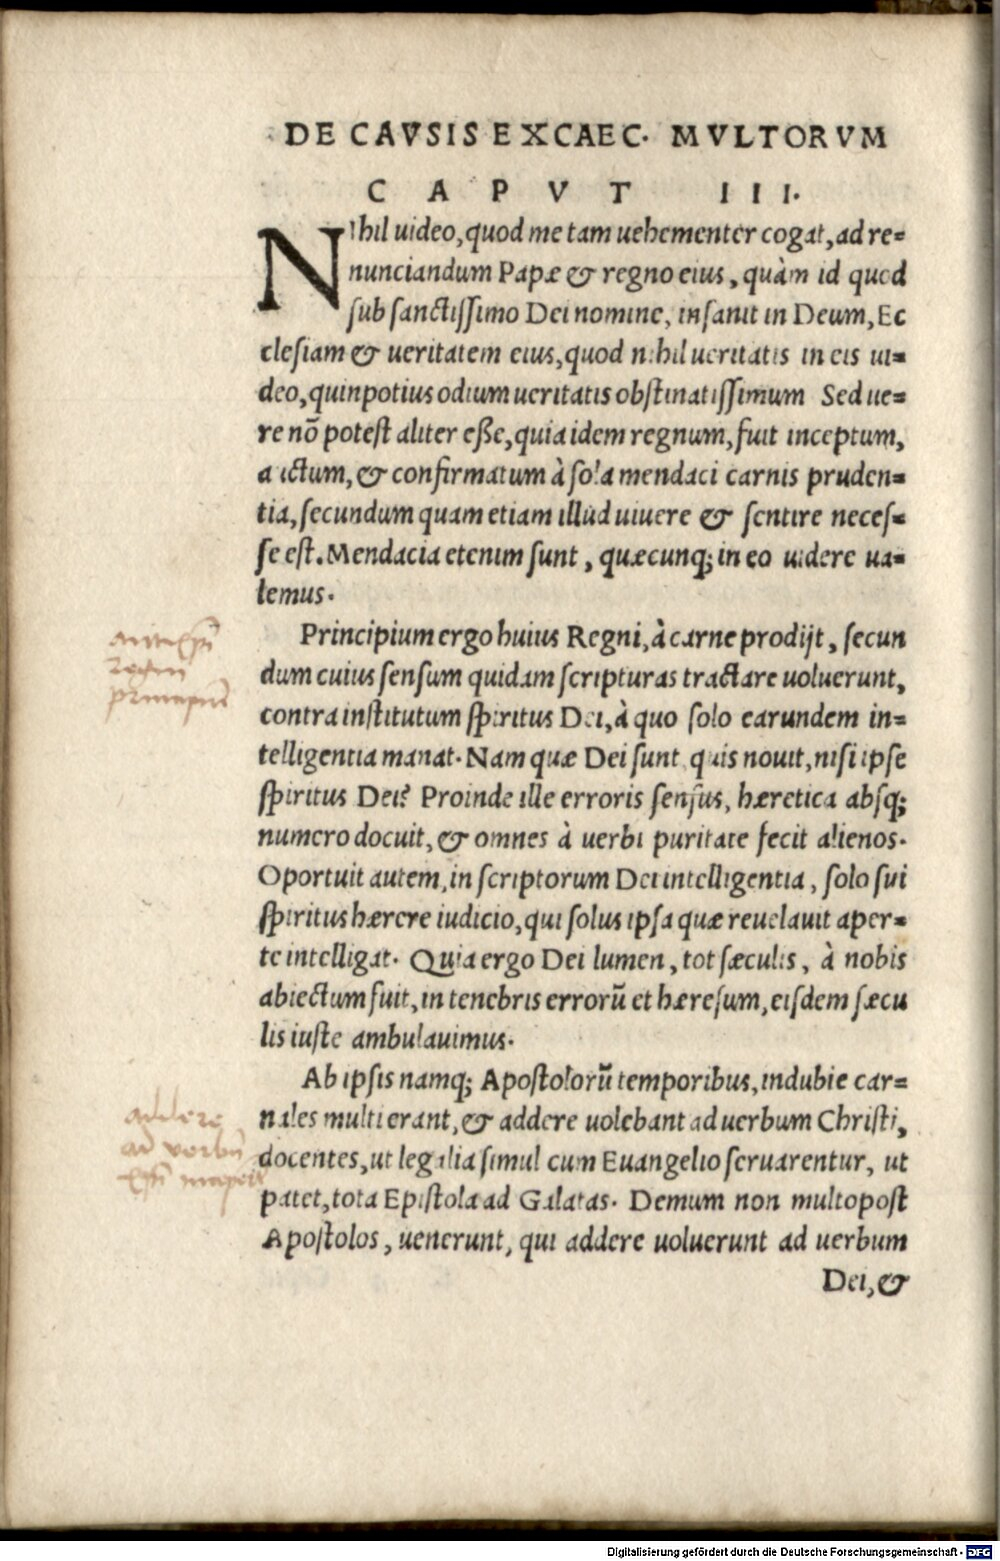 DE CAVSIS EXCAEC. MVLTORVM
CAPVT III.
NIhil uideo, quod me tam uehementer cogat, ad re=
nunciandum Papæ & regno eius, quàm id quod
sub sanctissimo Dei nomine, insanit in Deum, Ec
clesiam & ueritatem eius, quod nihil ueritatis in eis ui=
deo, quinpotius odium ueritatis obstinatissimum Sed ue=
re nõ potest aliter eße, quia idem regnum, fuit inceptum,
a ictum, & confirmatum à sola mendaci carnis pruden=
tia, secundum quam etiam illud uiuere & sentire neces=
se est. Mendacia etenim sunt, quæcunq; in eo uidere ua=
lemus.
Principium ergo huius Regni, à carne prodijt, secun
dum cuius sensum quidam scripturas tractare uoluerunt,
contra institutum spiritus Dei, à quo solo earundem in=
telligentia manat. Nam quæ Dei sunt quis nouit, nisi ipse
spiritus Dei? Proinde ille erroris sensus, hæretica absq;
numero docuit, & omnes à uerbi puritate fecit alienos.
Oportuit autem, in scriptorum Dei intelligentia, solo sui
spiritus hærere iudicio, qui solus ipsa quæ reuelauit aper=
te intelligat. Quia ergo Dei lumen, tot sæculis, à nobis
abiectum fuit, in tenebris errorũ et hæresum, eisdem sæcu
lis iuste ambulauimus.
Ab ipsis namq; Apostolorũ temporibus, indubie car=
nales multi erant, & addere uolebant ad uerbum Christi,
docentes, ut legalia simul cum Euangelio seruarentur, ut
patet, tota Epistola ad Galatas. Demum non multopost
Apostolos, uenerunt, qui addere uoluerunt ad uerbum
Dei, &
addere
ad verbũ
Digitalisierung gefördert durch die Deutsche Forschungsgemeinschaft - DFG